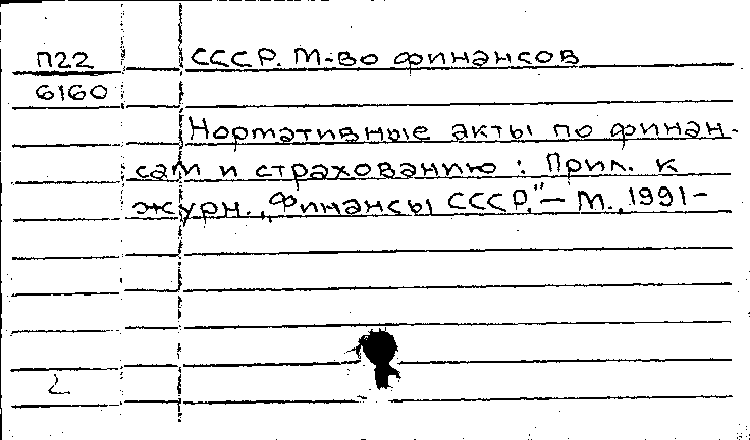 П22 СССР. М-во финансов
6160
Нормативные акты по финан-
сам и страхованию: Прил. к
журн. „Финансы СССР."— М., 1991-